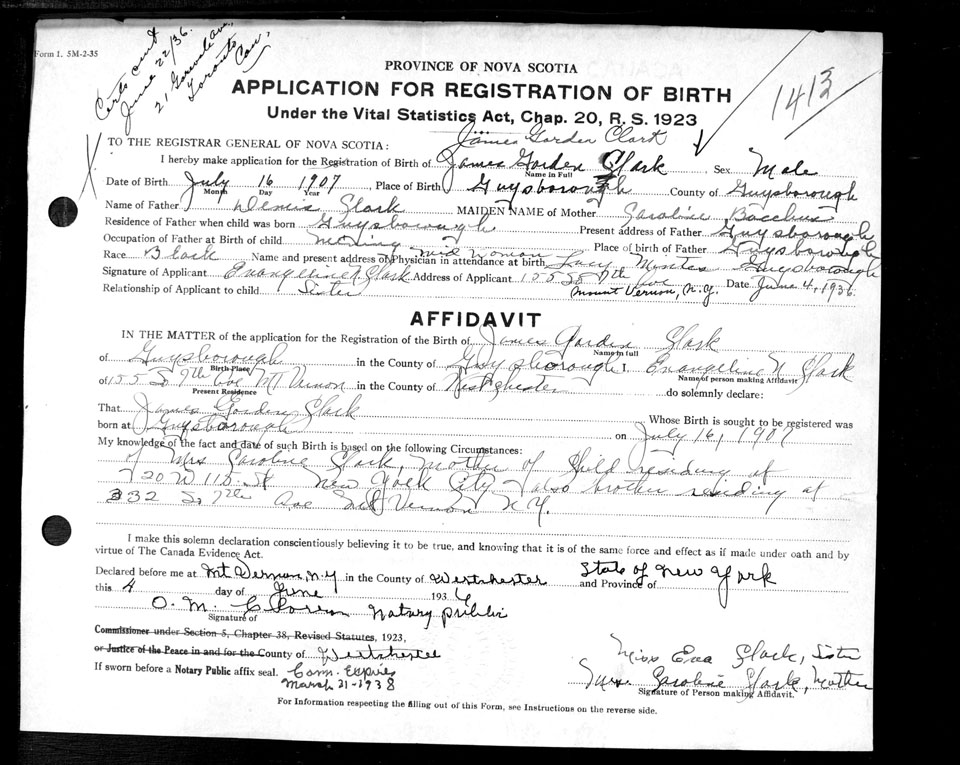 Form 1. 5M-2-35
Certs out
June 22/36.
21 Ave,
Toronto
Can,
1413
PROVINCE OF NOVA SCOTIA
APPLICATION FOR REGISTRATION OF BIRTH
Under the Vital Statistics Act, Chap. 20, R. S. 1923
James Gorden Clark
TO THE REGISTRAR GENERAL OF NOVA SCOTIA:
I hereby make application for the Registration of Birth of James Gorden Clark Sex Male
Name in Full
Date of Birth July 16 1907, Place of Birth Guysborough County of Guysborough
Month Day Year
Name of Father Denis Clark MAIDEN NAME of Mother Caroline Bacchus
Residence of Father when child was born Guysborough Present address of Father Guysborough
Occupation of Father at Birth of child Mining Place of birth of Father Guysborough
Race Black Name and present address of Physician in attendance at birth Mid Woman Lucy Mintes Guysborough
Signature of Applicant Evangeline N Clark Address of Applicant 155 So 9th Ave Date June 4, 1936
Relationship of Applicant to child Sister Mount Vernon, N.Y.
AFFIDAVIT
IN THE MATTER of the application for the Registration of the Birth of James Gorden Clark
Name in full
of Guysborough in the County of Guysborough I, Evangeline N Clark
Birth Place Name of person making Affidavit
of 155 So 9th Ave Mt Vernon in the County of Westchester do solemnly declare:
Present Residence
That James Gorden Clark Whose Birth is sought to be registered was
born at Guysborough on July 16, 1907
My knowledge of the fact and date of such Birth is based on the following Circumstances:
of Mrs Caroline Clark, Mother of Child residing at
20 W 115 St New York City also brother residing at
332 So 7th Ave Mt Vernon N.Y.
I make this solemn declaration conscientiously believing it to be true, and knowing that it is of the same force and effect as if made under oath and by
virtue of The Canada Evidence Act.
Declared before me at Mt Vernon, N.Y in the County of Westchester and Province of State of New York
this 4 day of June 1936
O. M. Notary public
Signature of
Commissioner under Section 5, Chapter 38, Revised Statutes, 1923,
or Justice of the Peace in and for the County of Westchester
If sworn before a Notary Public affix seal. Com. Expires
March 31-1938
Miss Eva Clark, Sister
Mrs Caroline Clark, Mother
Signature of Person making Affidavit.
For Information respecting the filling out of this Form, see Instructions on the reverse side.